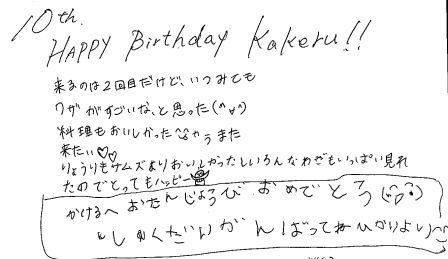 10th.
HAPPY Birthday Kakeru!!
来るのは2回目だけど、いつみても
ワザがすごいな、と思った(^v^)
料理もおいしかった〜
また
来たい♡♡
りょうりもサムズよりおいしかったしいろんなわざもいっぱい見れ
たのでとってもハッピー
かけるへ おたんじょうび おめでとう(^o^)
しゅくだいがんばってねひかりより